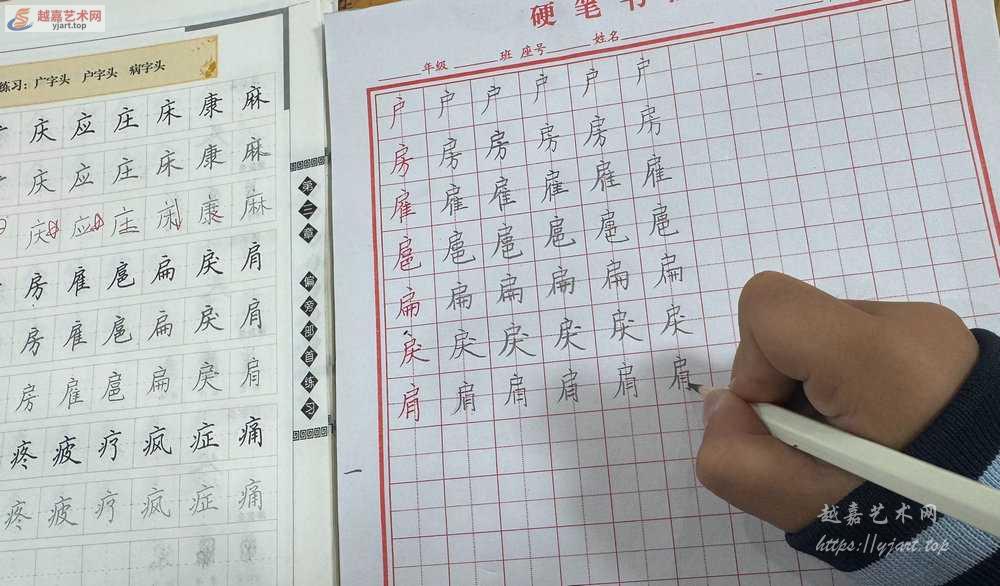 越嘉艺术网
yjart.top
练习：广字头 户字头 病字头
庆应庄床康麻
庆应庄床康麻
庆应庄床康麻
房雇扈扁戾肩
房雇扈扁戾肩
房雇扈扁戾肩
疼疲疗疯症痛
疼疲疗疯症痛
第三章 偏旁部首练习
硬笔书
年级 班 座号 姓名
户户户户户户
房房房房房房
雇雇雇雇雇雇
扈扈扈扈扈扈
扁扁扁扁扁扁
戾戾戾戾戾戾
肩肩肩肩肩肩
越嘉艺术网
https://yjart.top